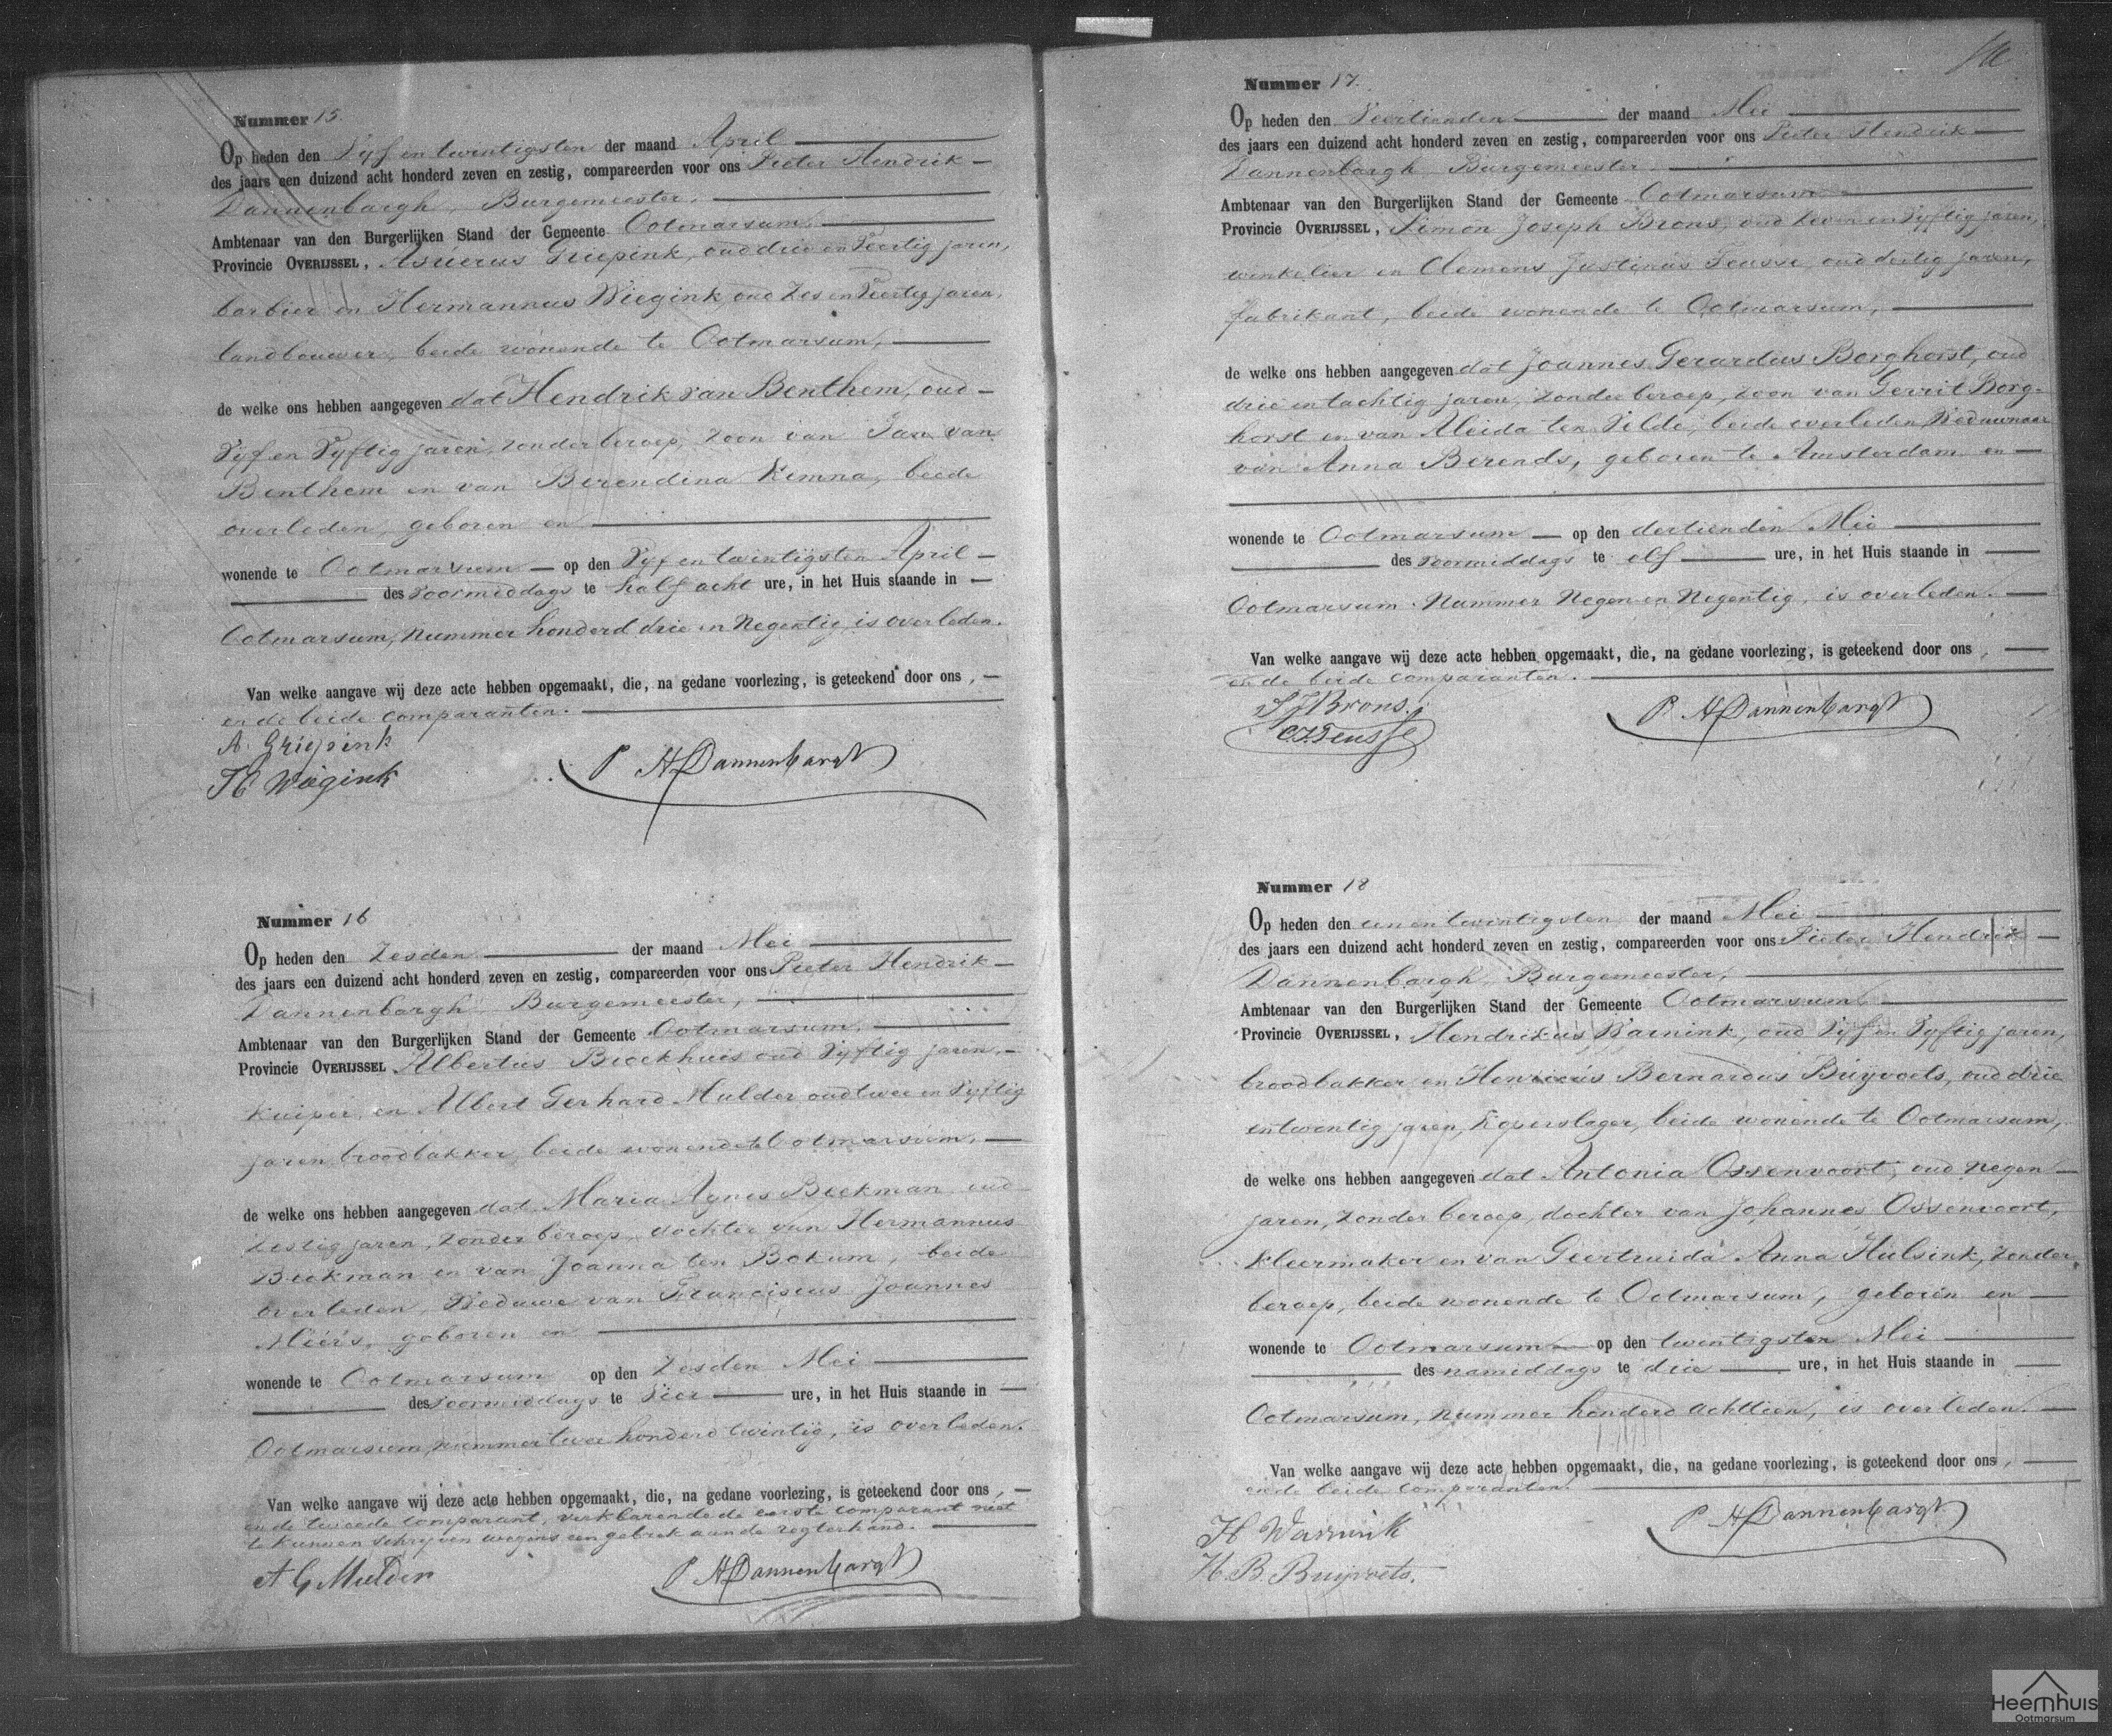 Nummer 15.
Op heden den Vyf en twintigsten der maand April
des jaars een duizend acht honderd zeven en zestig, compareerden voor ons Pieter Hendrik
Dannenbargh, Burgemeester,
Ambtenaar van den Burgerlijken Stand der Gemeente Ootmarsum,
Provincie OVERIJSSEL, Asuerus Griepink, oud drie en Veertig jaren,
barbier en Hermannus Wiegink, oud Zes en Veertig jaren,
landbouwer, beide wonende te Ootmarsum,
de welke ons hebben aangegeven dat Hendrik van Benthem, oud
Vyf en Vyftig jaren, zonder beroep, zoon van Jan van
Benthem en van Berendina Kemna, beide
overleden, geboren en
wonende te Ootmarsum op den Vyf en twintigsten April
des voormiddags te half acht ure, in het Huis staande in
Ootmarsum, nummer honderd drie en Negentig, is overleden.
Van welke aangave wij deze acte hebben opgemaakt, die, na gedane voorlezing, is geteekend door ons,
en de beide comparanten.
A. Griepink
H Wiegink
P H Dannenbargh
Nummer 16
Op heden den Zesden der maand Mei
des jaars een duizend acht honderd zeven en zestig, compareerden voor ons Pieter Hendrik
Dannenbargh Burgemeester,
Ambtenaar van den Burgerlijken Stand der Gemeente Ootmarsum,
Provincie OVERIJSSEL Albertus Broekhuis oud Vyftig jaren,
Kuiper, en Albert Gerhard Mulder oud twee en Vyftig
jaren, broodbakker, beide wonende te Ootmarsum,
de welke ons hebben aangegeven dat Maria Agnes Beekman oud
Zestig jaren, zonder beroep, dochter van Hermannus
Beekman en van Joanna ten Bokum, beide
overleden, Weduwe van Franciscus Joannes
geboren en
wonende te Ootmarsum op den Zesden Mei
des Voormiddags te Vier ure, in het Huis staande in
Ootmarsum, nummer twee honderd twintig, is overleden.
Van welke aangave wij deze acte hebben opgemaakt, die, na gedane voorlezing, is geteekend door ons,
en de tweede comparant, verklarende de eerste comparant niet
te kunnen schrijven wegens een gebrek aan de regterhand.
A G Mulder
P H Dannenbargh
Nummer 17.
Op heden den Veertienden der maand Mei
des jaars een duizend acht honderd zeven en zestig, compareerden voor ons Pieter Hendrik
Dannenbargh, Burgemeester
Ambtenaar van den Burgerlijken Stand der Gemeente Ootmarsum
Provincie OVERIJSSEL, Simon Joseph Brons, oud Zeven en Vyftig jaren,
winkelier en Clemens Justinus Teusse, oud dertig jaren,
fabrikant, beide wonende te Ootmarsum,
de welke ons hebben aangegeven dat Joannes Gerardus Borghorst, oud
drie en tachtig jaren, zonder beroep, zoon van Gerrit Borg-
horst en van Aleida ten Velde, beide overleden, Weduwnaar
van Anna Berends, geboren te Amsterdam en
wonende te Ootmarsum op den dertienden Mei
des voormiddags te elf ure, in het Huis staande in
Ootmarsum Nummer Negen en Negentig, is overleden.
Van welke aangave wij deze acte hebben opgemaakt, die, na gedane voorlezing, is geteekend door ons,
en de beide comparanten.
S J Brons.
C J Teusse
P H Dannenbargh
Nummer 18
Op heden den een en twintigsten der maand Mei
des jaars een duizend acht honderd zeven en zestig, compareerden voor ons Pieter Hendrik
Dannenbargh, Burgemeester,
Ambtenaar van den Burgerlijken Stand der Gemeente Ootmarsum,
Provincie OVERIJSSEL, Hendrikus oud Vyf en Vyftig jaren,
broodbakker en Henricus Bernardus Buyvoets, oud drie
en twentig jaren, koperslager, beide wonende te Ootmarsum,
de welke ons hebben aangegeven dat Antonia Ossenvoort, oud negen
jaren, zonder beroep, dochter van Johannes Ossenvoort,
kleermaker en van Geertruida Anna Hulsink, zonder
beroep, beide wonende te Ootmarsum, geboren en
wonende te Ootmarsum op den twintigsten Mei
des namiddags te drie ure, in het Huis staande in
Ootmarsum, nummer honderd achttien, is overleden.
Van welke aangave wij deze acte hebben opgemaakt, die, na gedane voorlezing, is geteekend door ons,
en de beide comparanten.
H. B. Buijvoets.
P H Dannenbargh
Heemhuis
Ootmarsum